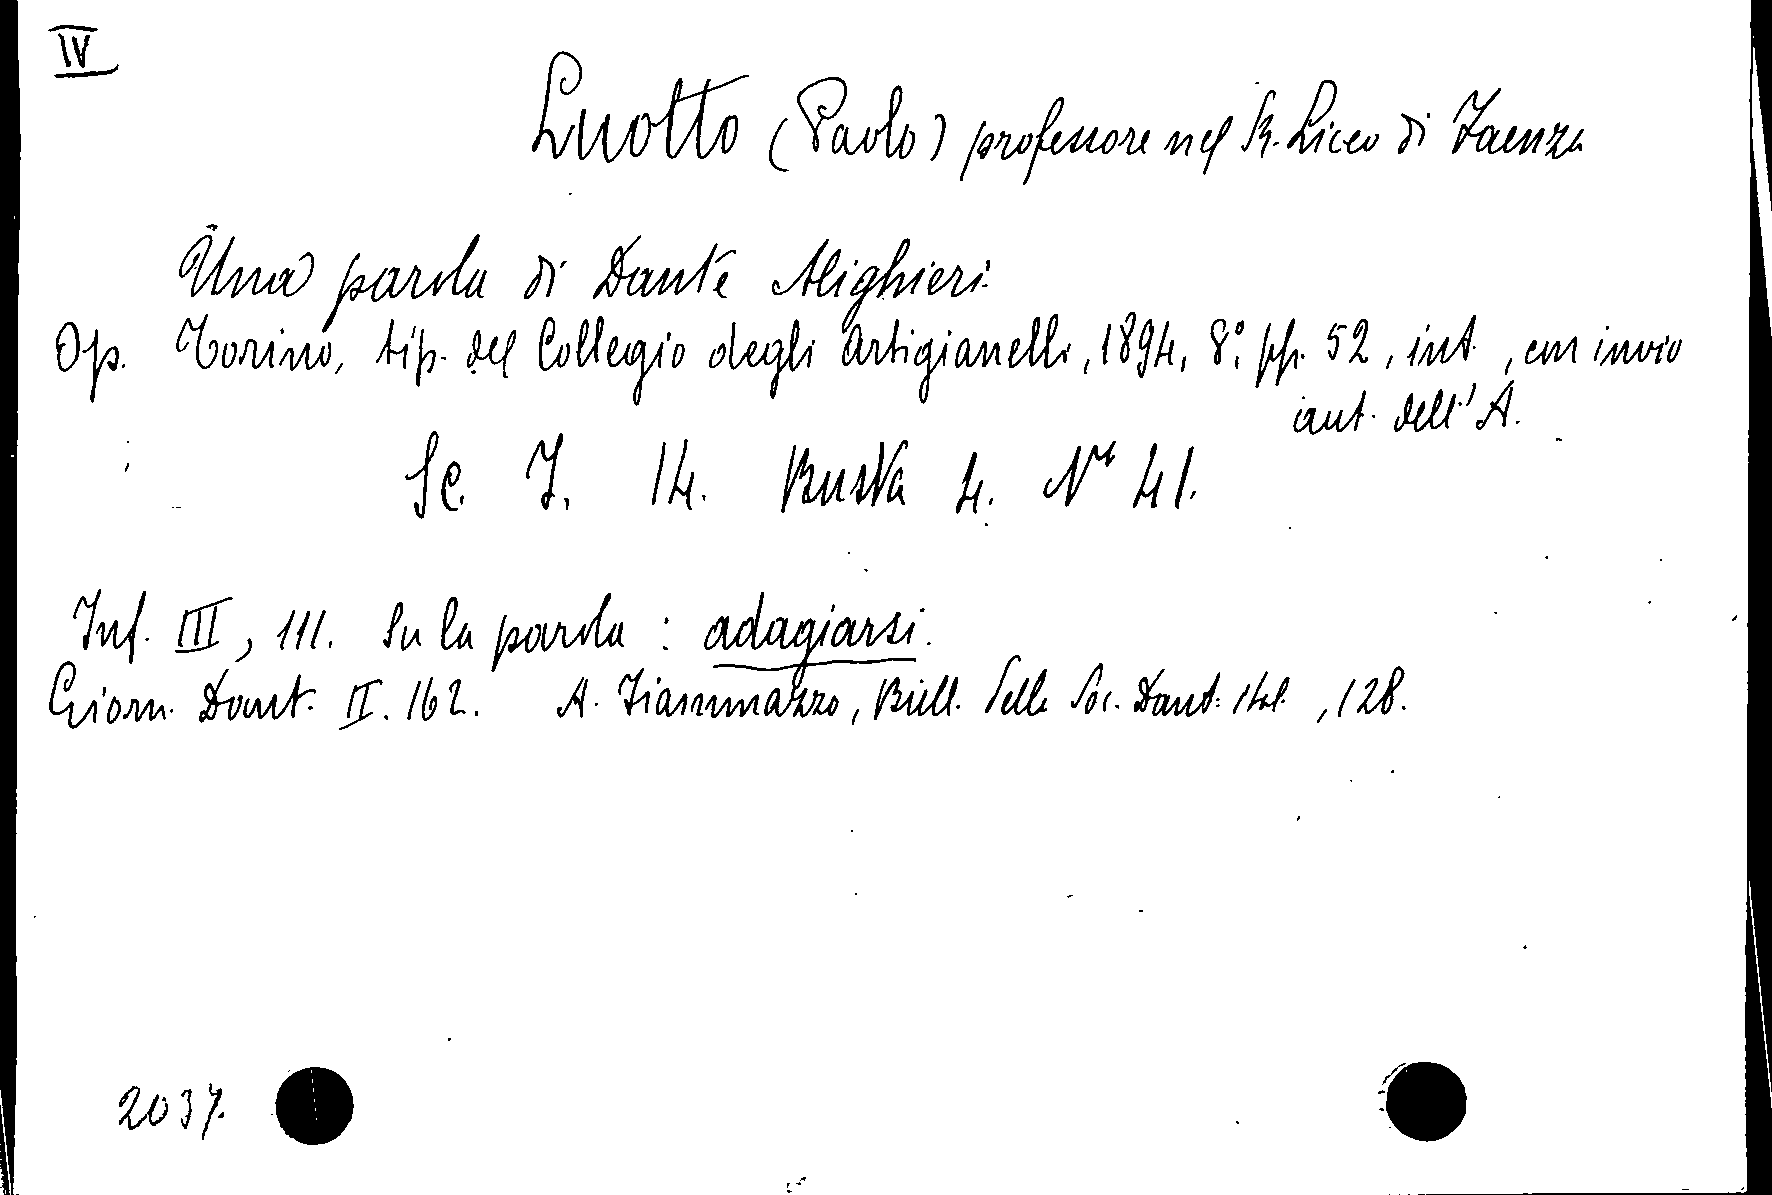 IV
Luotto (Paolo) professore nel R. Liceo di Faenza
Una parola di Dante Alighieri.
Op. Torino, tip. del Collegio degli Artigianelli, 1894, 8°. pp. 52, int., con invio
aut. dell'A.
Sc. I. 14. Busta 4. Nº 41.
Inf. III, 111. Su la parola: adagiarsi.
Giorn. Dant. II. 162. A. Fiammazzo, Bull. della Soc. Dant. ital., 128.
2037.